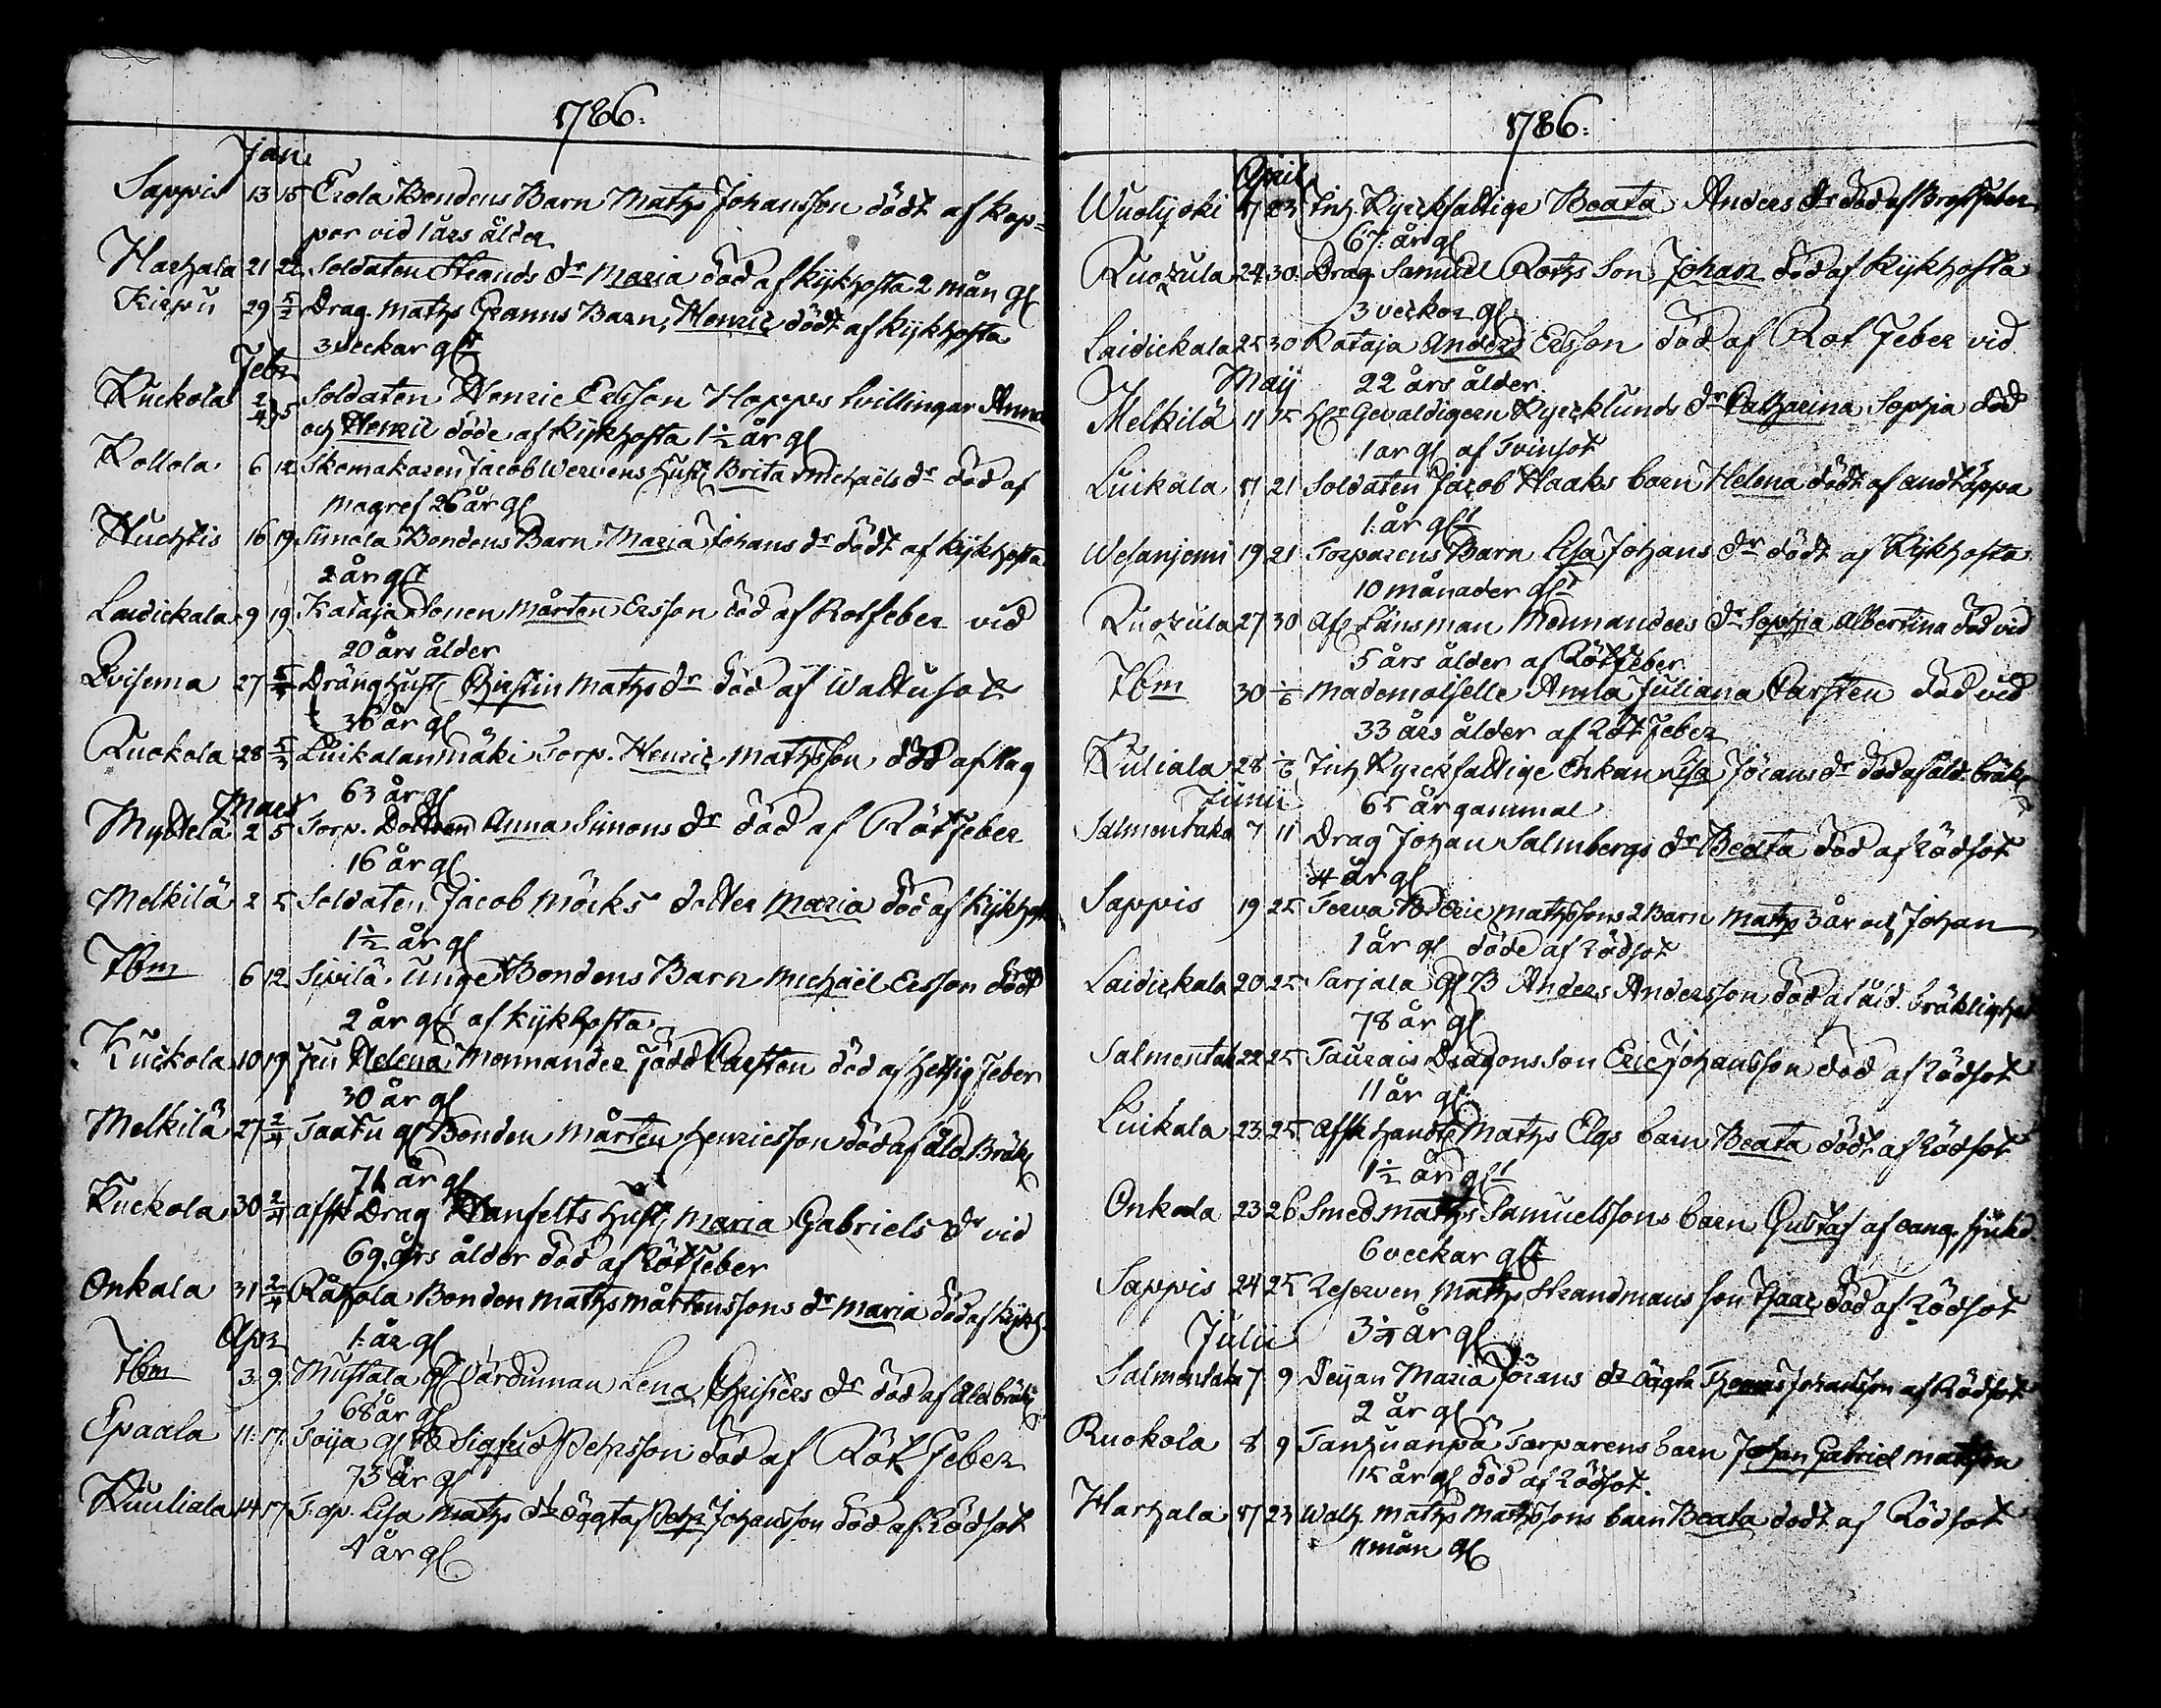 1786.
Jan
Sappis 13 15 Erola Bondens Barn Maths Johansson dödt af Kop=
por vid 1 års ålder
Harhala 21 22 Soldaten Strands dr Maria död af Kijkhosta 2 mån gl
Kirpu 29 5/2 Drag. Maths Granns Barn, Henric dödt af Kijkhosta
3 veckar glt
Febr
Kuckola 2/4 5 Soldaten Henric Ersson Hopps tvillingar Anna
och Henric döde af Kijkhosta 1 1/2 år gl
Kollola 6 12 Skomakaren Jacob Wervens hust. Brita Michaels dr död af
Magref 26 år gl
Huchtis 16 19 Simola Bondens Barn Maria Johans dr dödt af Kijkhosta
2 år glt
Laidickala 9 19 Kataja Sonen Mårten Ersson död af Rotfeber vid
20 års ålder
Qvisema 27 5/ Dräng hust. Christin Maths dr död af Wattusot
36 år gl
Ruokola 28 5/ Luikalanmäki Torp. Henric Mathsson död af Hag
63 år gl
Mars
Myttelä 2 5 Torp. Dottren Anna Simons dr död af Rötfeber
16 år gl
Melkilä 2 5 Soldaten Jacob Mörks dotter Maria död af Kijkho
1 1/2 år gl
Ibm 6 12 Sipilä Unge Bondens Barn Michaël Ersson dödt
2 år glt af Kijkhosta
Kuckola 10 19 Fru Helena Monnander född Carsten död af hettig feber
30 år gl
Melkilä 27 2/4 Taatu gl Bonden Mårten Henricsson död af åld. Bräkl
71 år gl
Kuckola 30 2/4 affsk Drag Hanfelts hust. Maria Gabriels dr vid
69 års ålder död af Rötfeber
Onkala 31 2/4 Råhola Bonden Maths Mårtenssons dr Maria död af Kijkh.
1 år gl
Apr
Ibm 3 9 Mustala gl Värdinnan Lena Christers dr död af Åld. bräkl
68 år gl
Epaala 11 17 Toija gl B Sigfrid Pehrsson död af Röt Feber
73 år gl
Kuuliala 14 17 Lisa Maths dr oägta Pehr Johansson död af Rödsot
4 år gl
1786.
April
Wuolijoki 17 23 Inh. Kyrckfattige Beata Anders dr död af Bröstfeber
67 år gl
Ruokula 24 30 Drag. Samuel Roths Son Johan död af Kijkhosta
3 veckor gl
Laidickala 25 30 Kataja Anders Ersson död af Rot Feber vid
22 års ålder
Maij
Melkilä 11 15 Hr Gevaldigern Kyrcklunds dr Catharina Sophia död
1 år gl af Tvinsot
Luikala 17 21 Soldaten Jacob Haaks barn Helena dödt af andtäppa
1 år glt
Wesanjemi 19 21 Torparens Barn Lisa Johans dr dödt af Kijkhosta
10 månader glt
Ruokula 27 30 Afl Länsman Monnanders dr Sophia Albertina död vid
5 års ålder af Rötfeber
Ibm 30 1/6 Mademoiselle Anna Juliana Carsten död vid
33 års ålder af Röt Feber
Kuliala 28 1/6 Inh Kyrckfattige Enkan Lisa Jörans dr död af åld. bräkl
65 år gammal
Junii
Salmentaka 7 11 Drag Johan Salmbergs dr Beata död af Rödsot
4 år gl
Sappis 19 25 Terva B Eric Mathssons 2 Barn Maths 3 år och Johan
1 år gl döde af Rödsot
Laidickala 20 25 Sarjala gl B Anders Andersson död af åld. bräklighet
78 år gl
Salmentak 22 25 Taurais Dragons son Eric Johansson död af Rödsot
11 år gl
Luikala 23 25 Affsk Maths Elgs barn Beata dödt af Rödsot
1 1/2 år glt
Onkala 23 26 Smed Maths Samuelssons barn Gustaf af oang. sjukd.
6 veckar glt
Sappis 24 25 Reserven Maths Strandmans son Isaac död af Rödsot
3 1/4 år gl
Julii
Salmentaka 7 9 Deijan Maria Jörans dr oägta Thomas Johansson af Rödsot
2 år gl
Ruokola 8 9 Tanhuanpä Torparens barn Johan Gabriel Mathsson
15 år gl död af Rödsot.
Harhala 17 23 Maths Mathssons barn Beata dödt af Rödsot
11 mån gl